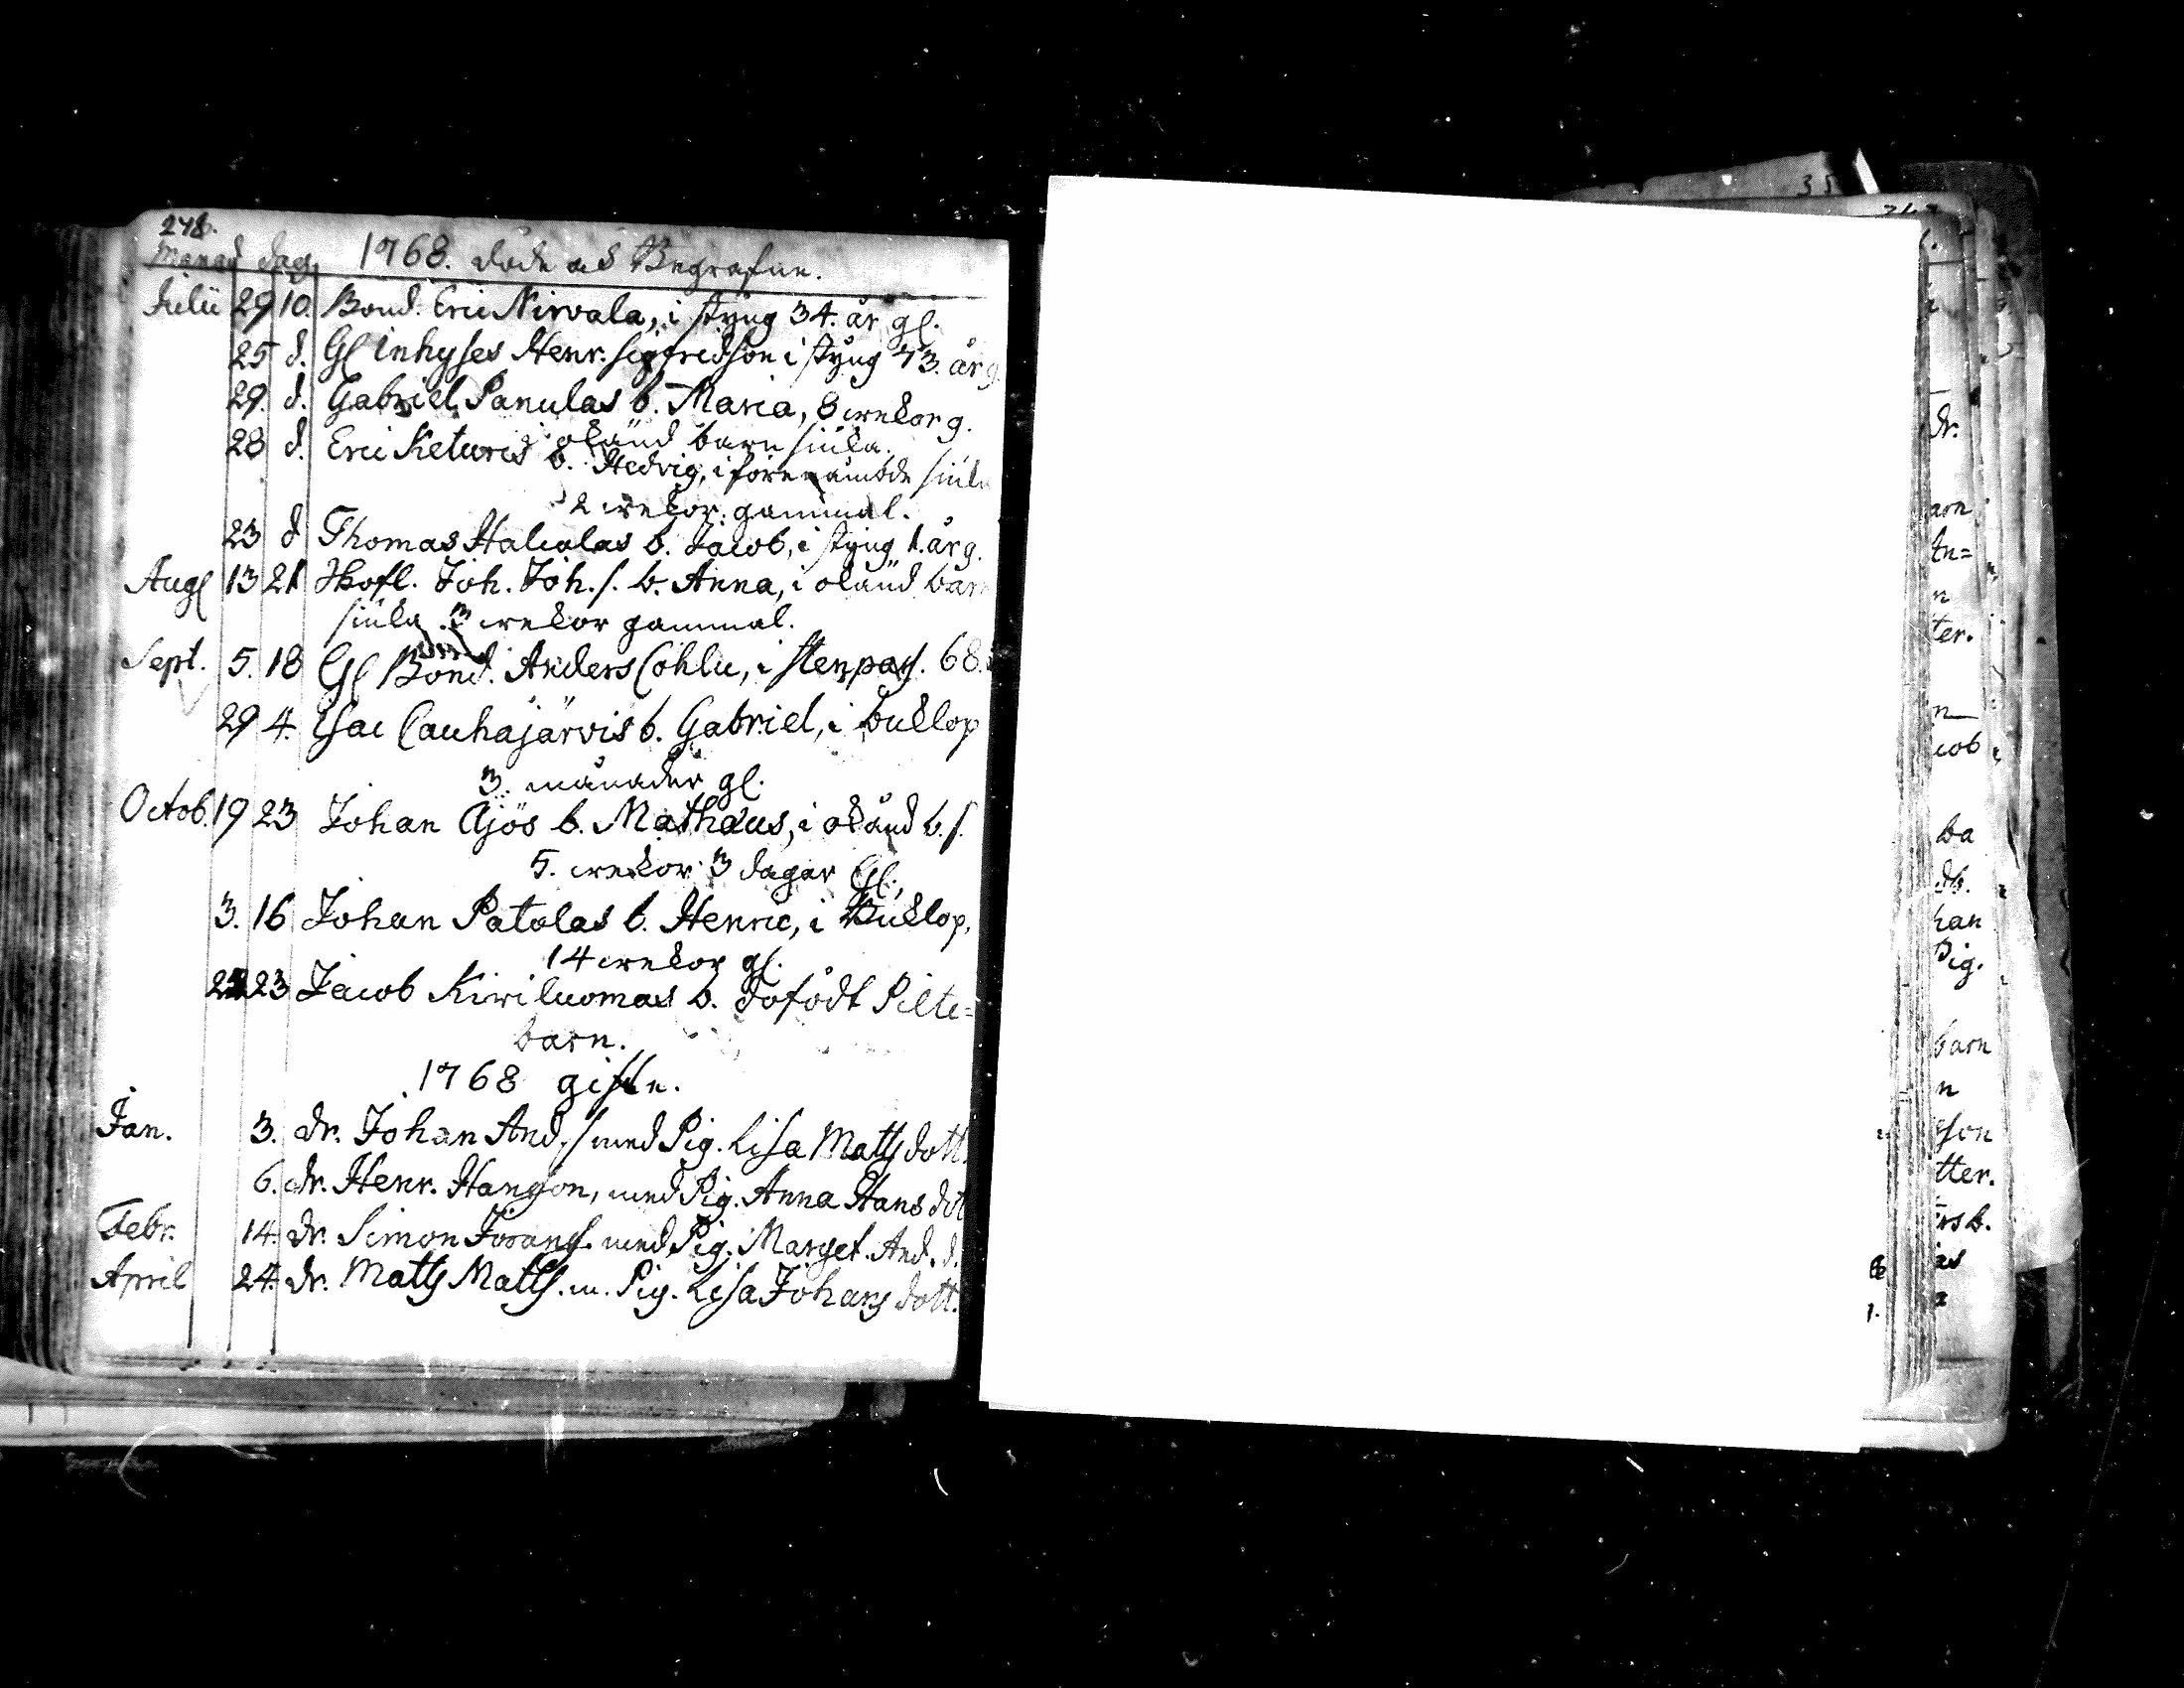 248.
Månad dag. 1768. döde ock Begrafne.
Julii 29 10. Bond. Eric Nirvala, i styng 34. år gl.
25 d. Gl Inhyses Henr. Sigfredson i styng 73. år g.
29. d. Gabriel Panulas b. Maria, 8 wekor g.
okänd barn siuka.
28 d. Eric Keturis b. Hedvig, i förenämbde siuk
2 wekor gammal.
23 d Thomas Halialas b. Jacob, i styng 1. år g.
Aug 13 21 Hofl. Joh. Joh. s. b. Anna, i okänd barn
siuka 3 wekor gammal.
Sept. 5. 18 Gl Bond. Anders Cohlu, i stenpass. 68.
29 4. Isac Cauhajärvis b. Gabriel, i bukklop
3. månader gl.
Octob. 19 23 Johan Ajös b. Mathæus, i okänd b. s.
5. wekor 3 dagar Gl.
3. 16 Johan Patolas b. Henric, i Buklop,
14 wekor gl.
23 Jacob Kiriluomas b. dofödt Pilte=
barn.
1768 gifte.
Jan. 3. dr. Johan And. s med Pig. Lisa Matts dott.
6. dr. Henr. Hansson, med Pig. Anna Hans dot
Febr. 14. dr. Simon Jörans. med Pig. Marget. And. d.
April 24. dr. Matts Matts. m. Pig. Lisa Johans dott.
35
dr.
arn
An=
n
ter.
n
cob
ba
db.
han
Pig.
barn
n
son
tter.
rs b.
as
1.